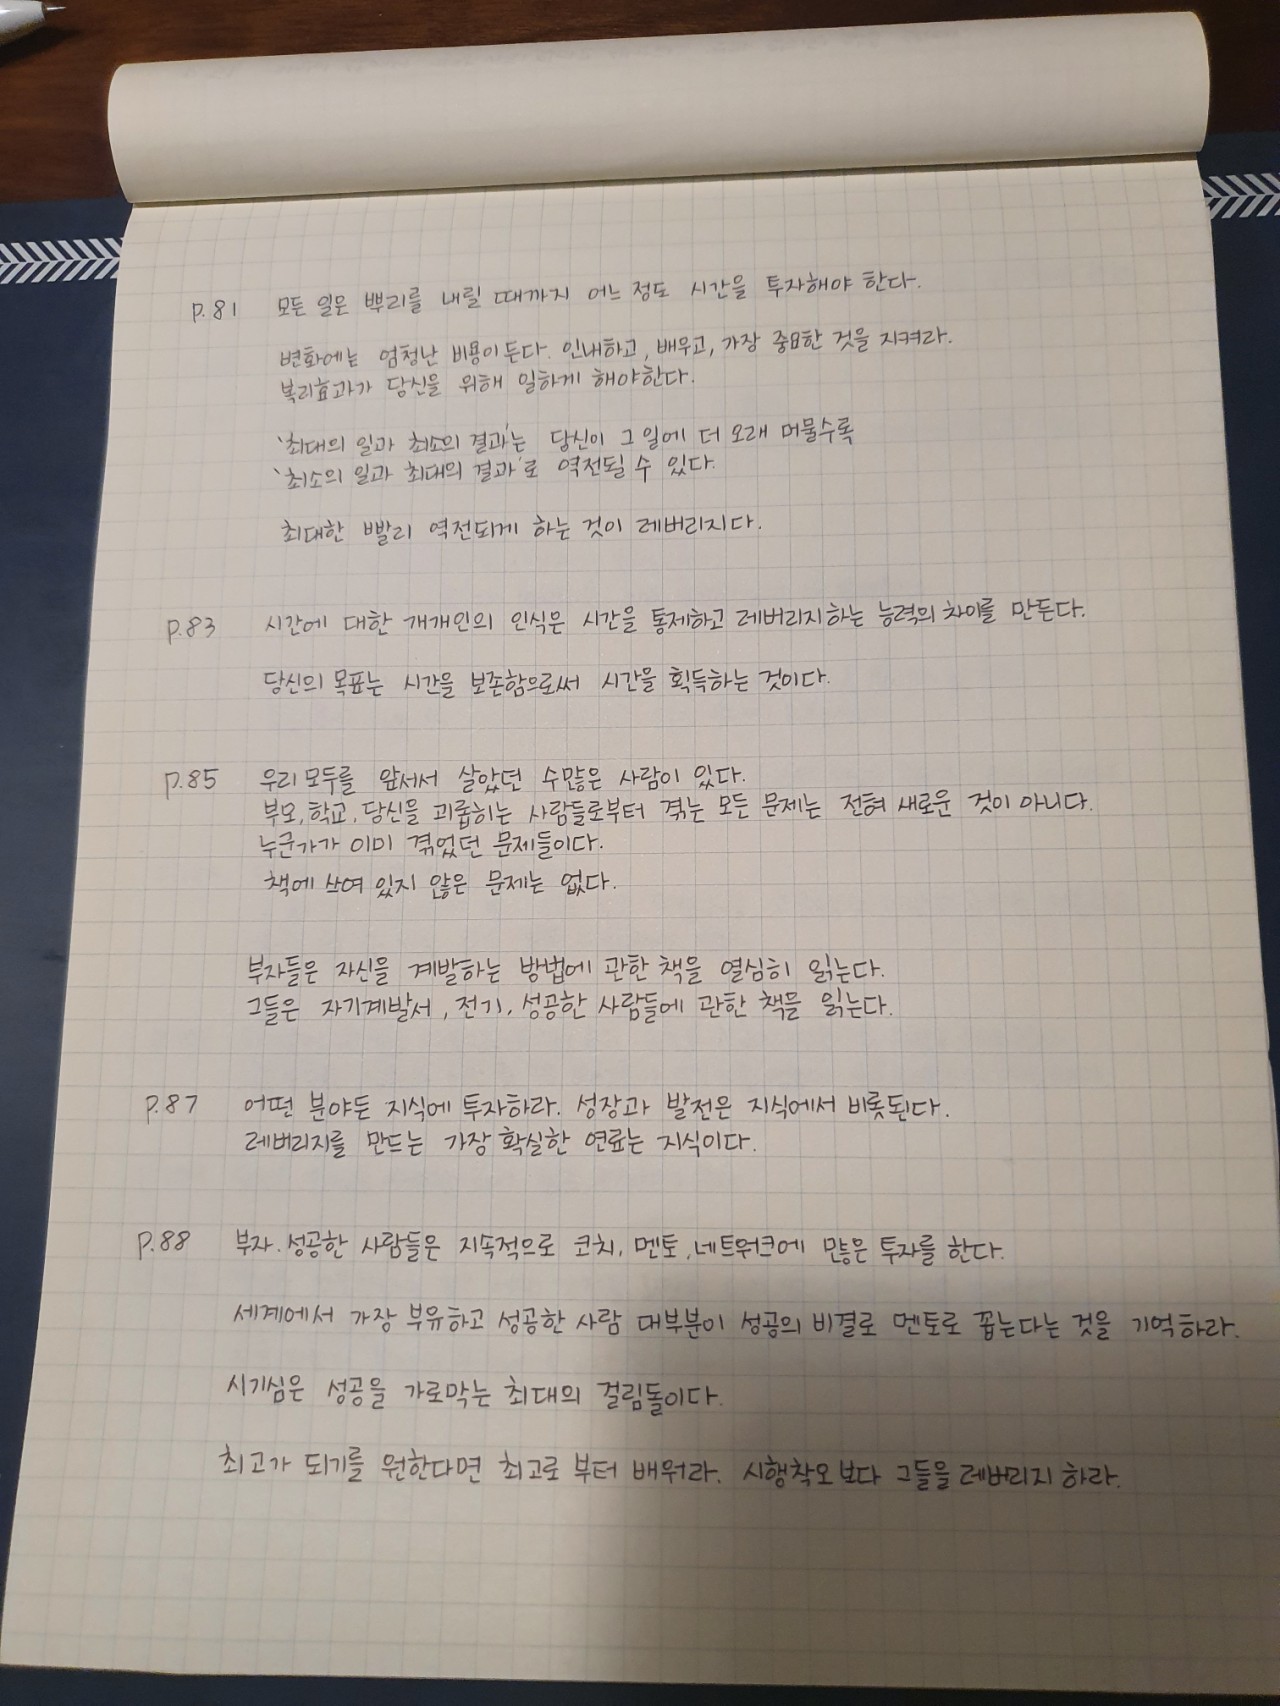 p.81 모든 일은 뿌리를 내릴 때까지 어느 정도 시간을 투자해야 한다.
변화에는 엄청난 비용이 든다. 인내하고, 배우고, 가장 중요한 것을 지켜라.
복리효과가 당신을 위해 일하게 해야한다.
'최대의 일과 최소의 결과'는 당신이 그 일에 더 오래 머물수록
'최소의 일과 최대의 결과'로 역전될 수 있다.
최대한 빨리 역전되게 하는 것이 레버리지다.
p.83 시간에 대한 개개인의 인식은 시간을 통제하고 레버리지하는 능력의 차이를 만든다.
당신의 목표는 시간을 보존함으로써 시간을 획득하는 것이다.
p.85 우리 모두를 앞서서 살았던 수많은 사람이 있다.
부모, 학교, 당신을 괴롭히는 사람들로부터 겪는 모든 문제는 전혀 새로운 것이 아니다.
누군가가 이미 겪었던 문제들이다.
책에 쓰여 있지 않은 문제는 없다.
부자들은 자신을 계발하는 방법에 관한 책을 열심히 읽는다.
그들은 자기계발서, 전기, 성공한 사람들에 관한 책을 읽는다.
p.87 어떤 분야든 지식에 투자하라. 성장과 발전은 지식에서 비롯된다.
레버리지를 만드는 가장 확실한 연료는 지식이다.
p.88 부자. 성공한 사람들은 지속적으로 코치, 멘토, 네트워크에 많은 투자를 한다.
세계에서 가장 부유하고 성공한 사람 대부분이 성공의 비결로 멘토로 꼽는다는 것을 기억하라.
시기심은 성공을 가로막는 최대의 걸림돌이다.
최고가 되기를 원한다면 최고로 부터 배워라. 시행착오보다 그들을 레버리지 하라.